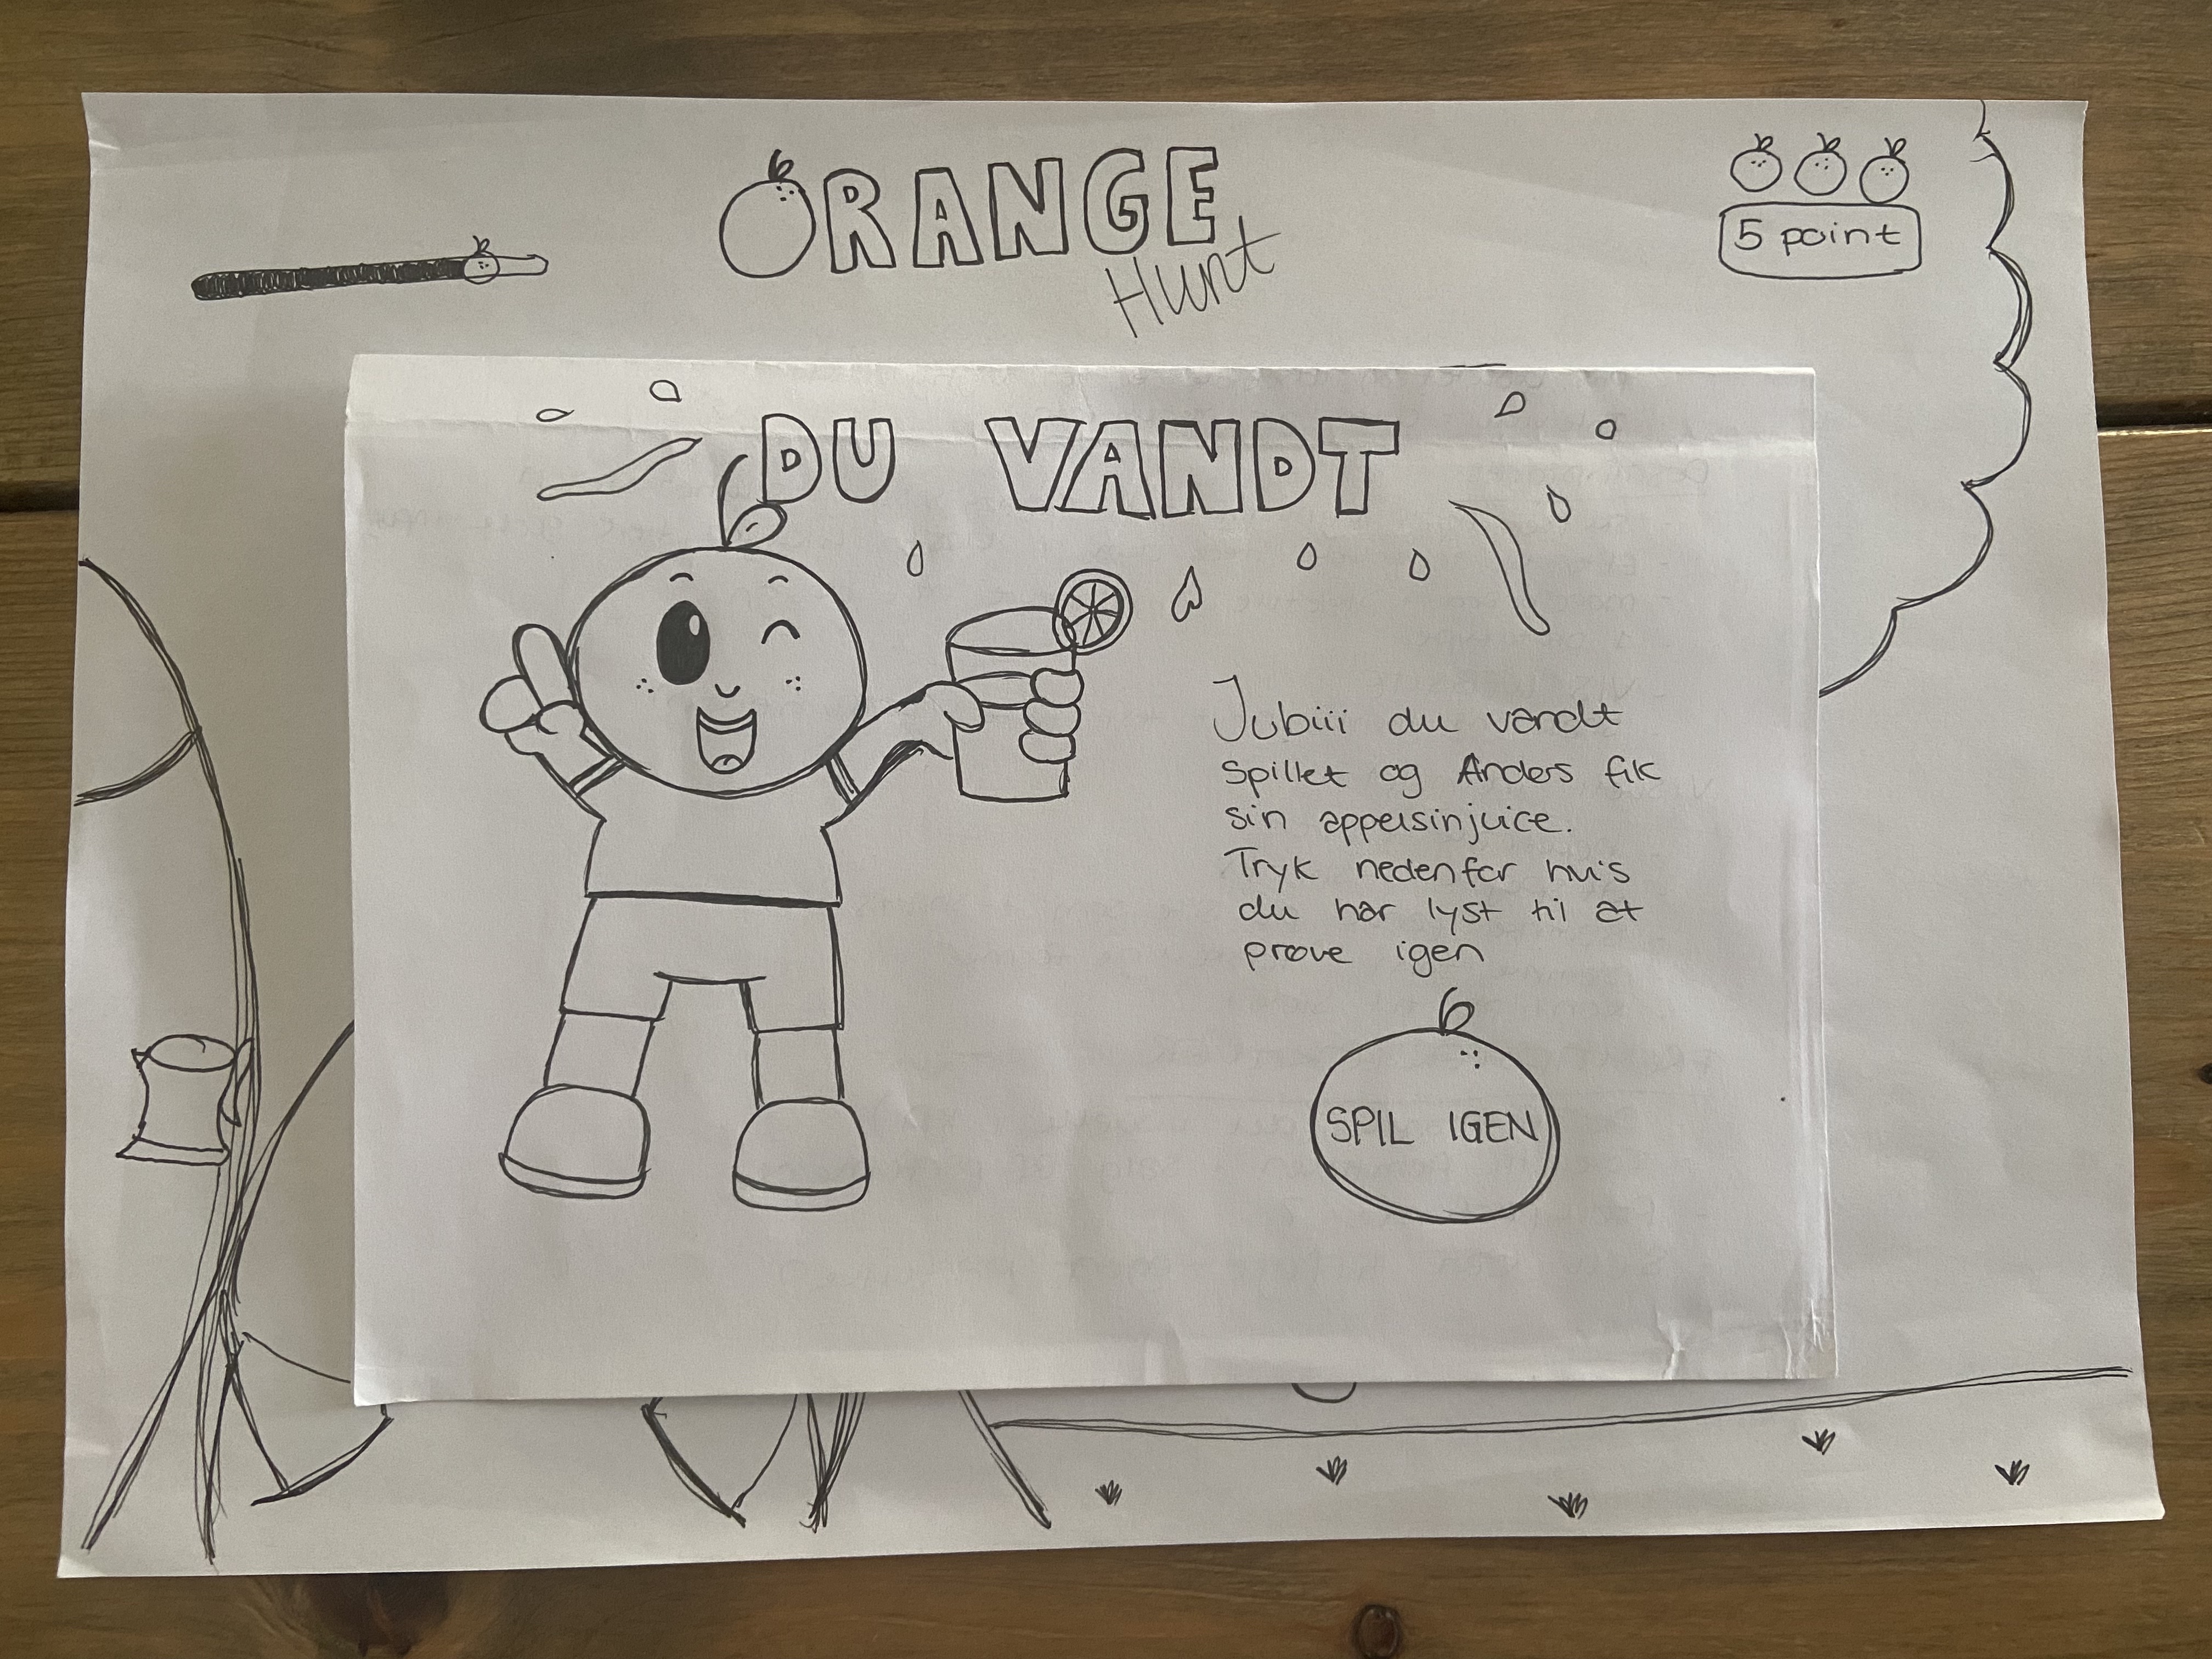 ORANGE
Hunt
5 point
DU VANDT
Jubiii du vandt
Spillet og Anders fik
sin appelsinjuice.
Tryk nedenfor hvis
du har lyst til at
prøve igen
SPIL IGEN